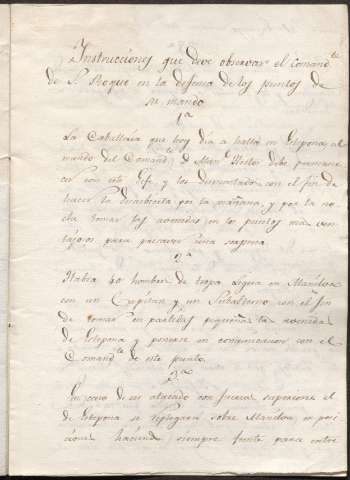 Instrucciones que deve observar el Comand.te
de S. Roque en la defensa de los puntos de
su mando
1a
La Caballeria que hoy dia a halla en Estepona al
mando del Comand.te d. debe permane
cer con este Gefe y los desmontados con el fin de
hacer la descubierta por la mañana, y por la no
che tomar las avenidas en los puntos mas ven
tajosos para precaver una sorpresa
2a
Habra 40 hombres de tropa ligera en Manilva
con un Capitan y un Subalterno con el fin
de tomar en partidas pequeñas la avenida
de Estepona y ponerse en comunicacion con el
Comand.te de este punto.
3a
En caso de ser atacado con fuerzas superiores el
de Estepona se replegará sobre Manilva, en posi
ciones haciendo siempre frente para entre